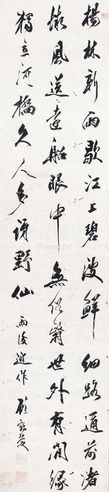 楊林新雨歇江上碧波鮮細路通前渚
歸風送遠船眼中無俗翳世外有閒緣
獨立河橋久人多訝野仙
雨後近作